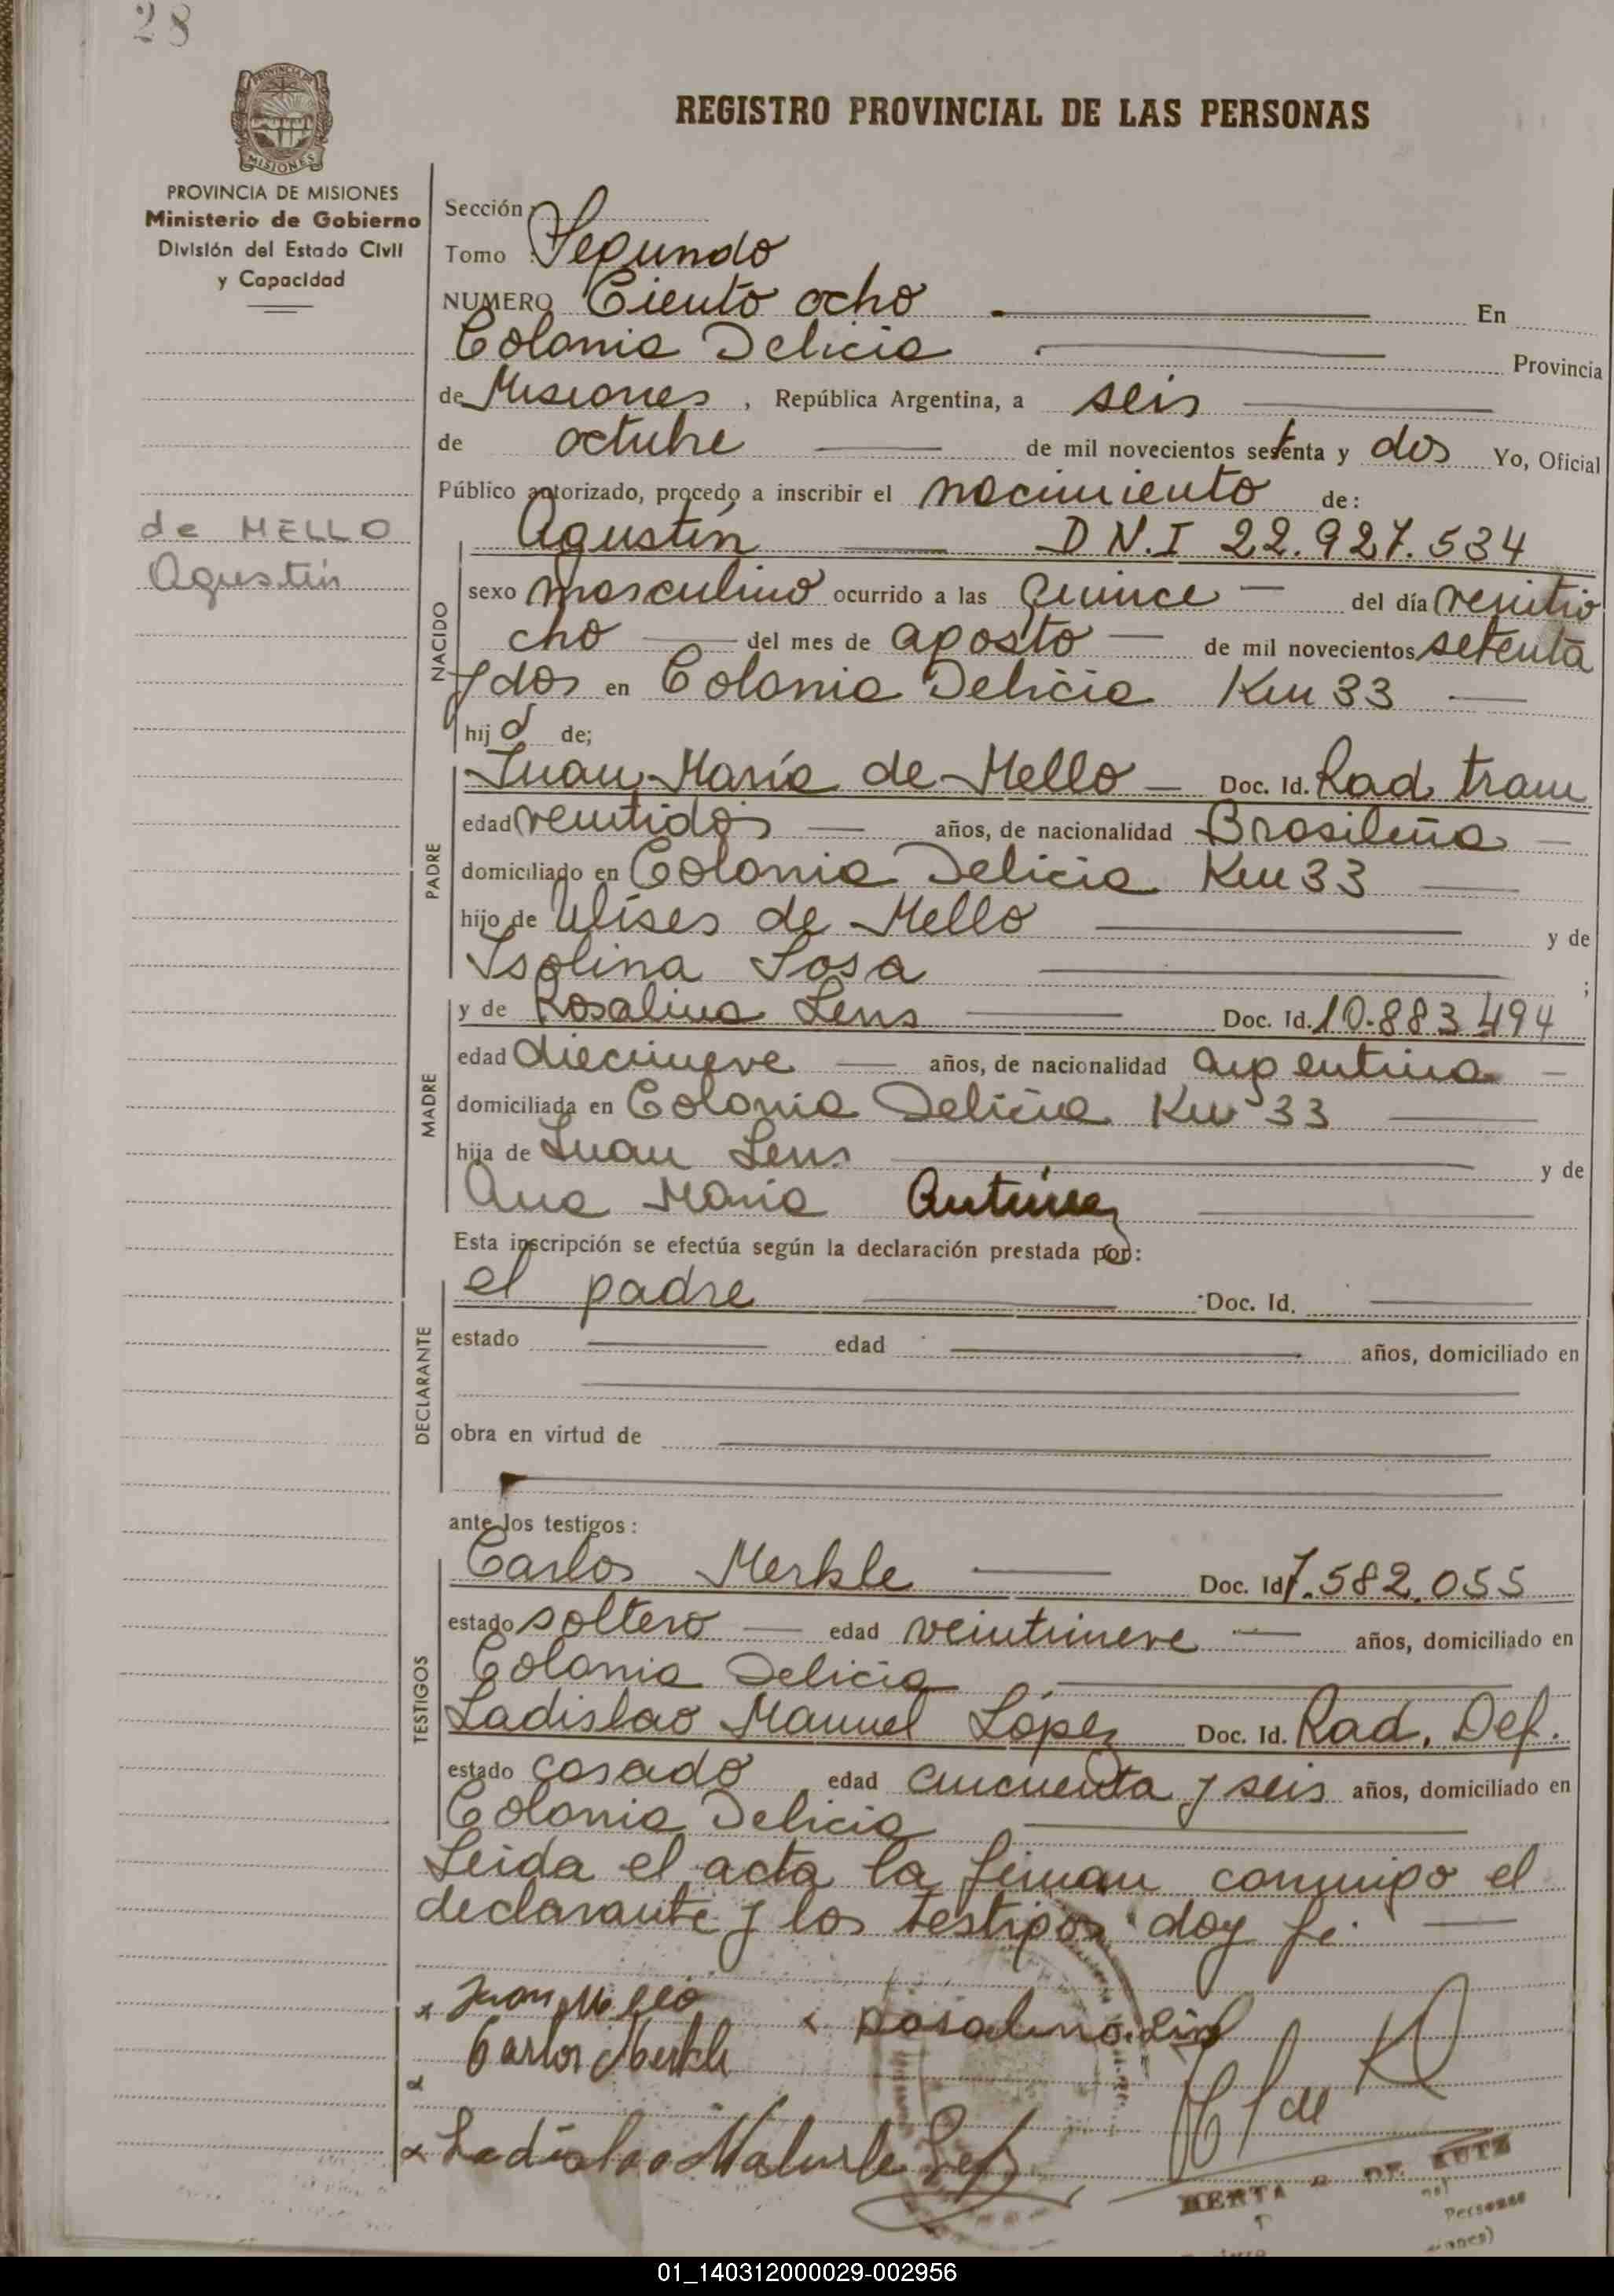 28
PROVINCIA DE
MISIONES
REGISTRO PROVINCIAL DE LAS PERSONAS
PROVINCIA DE MISIONES
Ministerio de Gobierno
División del Estado Civil
y Capacidad
Sección :
Tomo : Segundo
NUMERO Ciento ocho En
Colonia Delicia Provincia
de Misiones, República Argentina, a seis
de octubre de mil novecientos setenta y dos Yo, Oficial
Público autorizado, procedo a inscribir el nacimiento de:
de MELLO
Agustín
NACIDO
Agustín D N.I 22.927.534
sexo masculino ocurrido a las quince del día veintio
cho del mes de agosto de mil novecientos setenta
y dos en Colonia Delicia Km 33
hijo de;
PADRE
Juan María de Mello Doc. Id. Rad. tram
edad veintidos años, de nacionalidad Brasileña
domiciliado en Colonia Delicia Km 33
hijo de Ulises de Mello y de
Isolina Sosa ;
MADRE
y de Rosalina Lens Doc. Id. 10.883.494
edad diecinueve años, de nacionalidad argentina
domiciliada en Colonia Delicia Km 33
hija de Juan Lens y de
Ana María Antúnez
Esta inscripción se efectúa según la declaración prestada por:
DECLARANTE
el padre Doc. Id.
estado edad años, domiciliado en
obra en virtud de
ante los testigos :
TESTIGOS
Carlos Merkle Doc. Id 7.582.055
estado soltero edad veintinueve años, domiciliado en
Colonia Delicia
Ladislao Manuel López Doc. Id. Rad. Def.
estado casado edad cincuenta y seis años, domiciliado en
Colonia Delicia
Leida el acta la firman conmigo el
declarante y los testigos doy fe
Juan Mello
Carlos Merkle
Ladislao
HERTA DE KUTZ
Personas
01_140312000029-002956